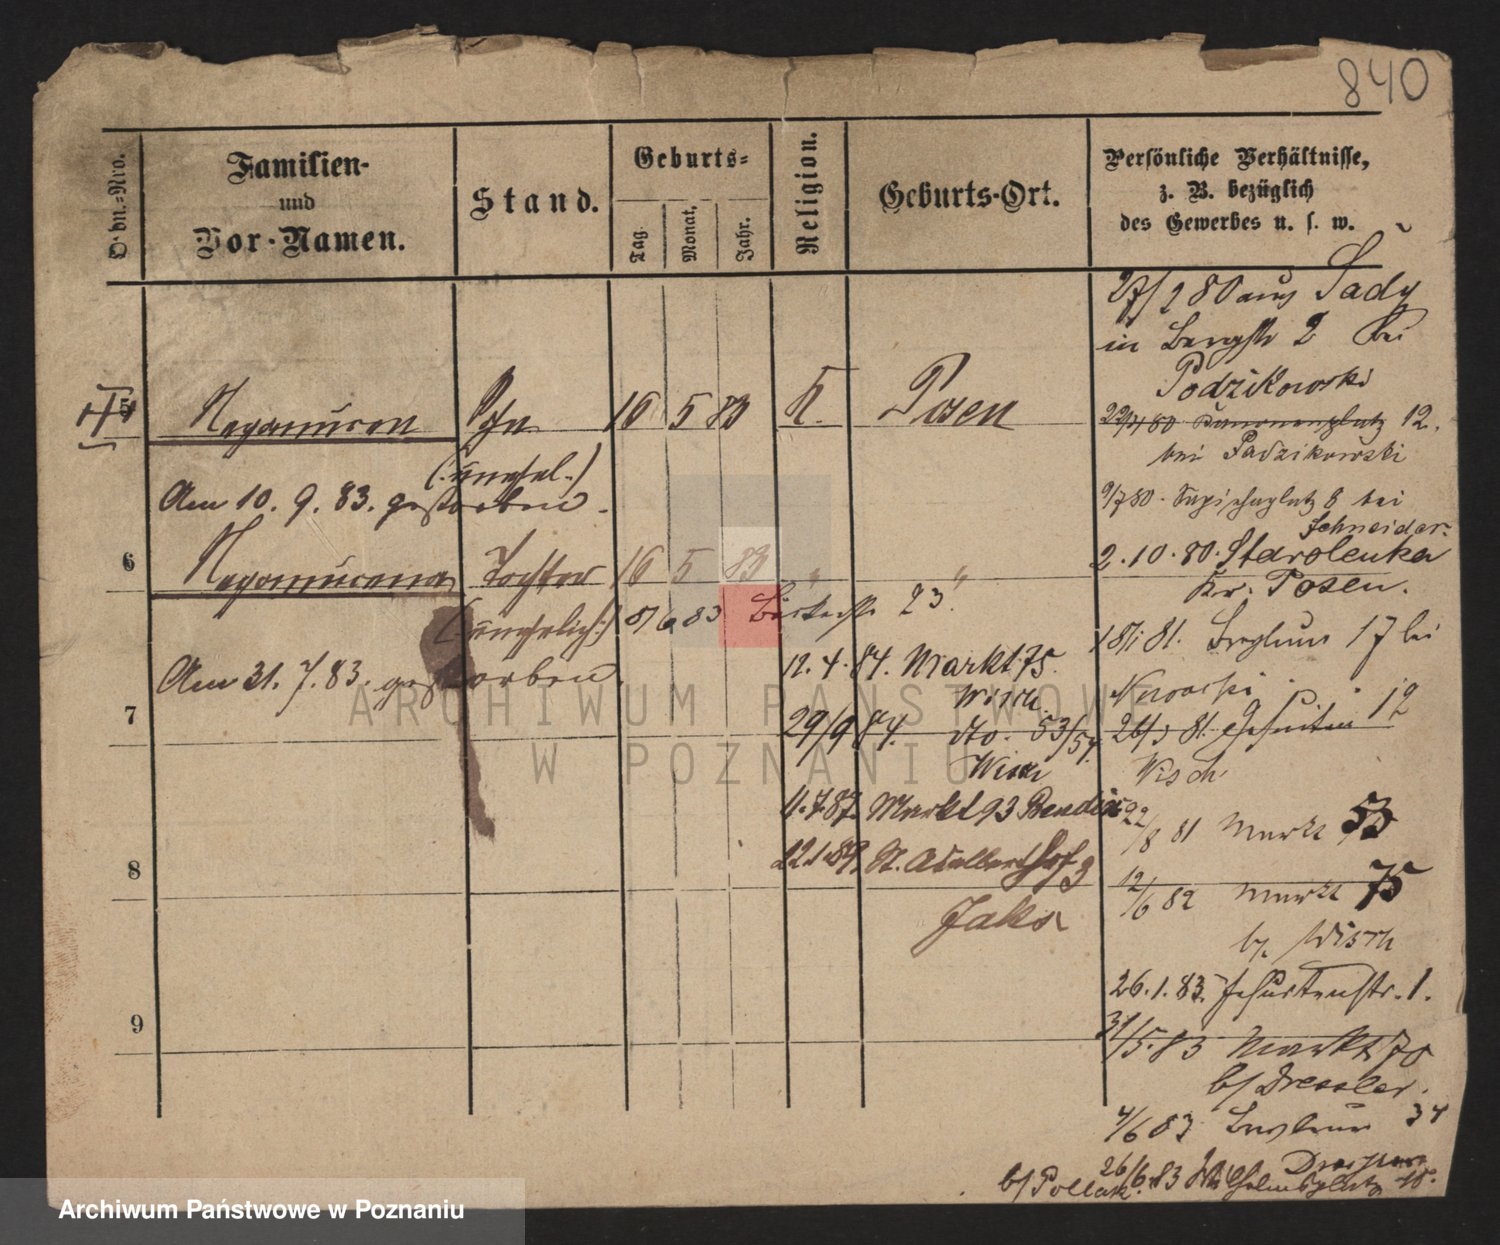 840
O dn.-Nro.
Familien-
und
Vor-Namen.
Stand.
Geburts-
Tag.
Monat.
Jahr.
Religion.
Geburts-Ort.
Persönliche Verhältnisse,
z. B. bezüglich
des Gewerbes u. s. w.
27/2 80 aus Sady
in Bergstr 2 bei
Podzikowski
5 Nepomucen 16 5 83 K. Posen
22/4 80 Kanonenplatz 12.
bei Padzikowski
(unehel.)
Am 10. 9. 83. gestorben.
9/7 80. Sapiehaplatz 8 bei
Schneider.
6 Nepomucena Tochter 16 5 83 " "
2. 10. 80. Starolenka
Kr. Posen.
(unehelich)
8/6 83 23.
18/1 81. 17 bei
Am 31. 7. 83. gestorben.
12. 4. 84. Markt 75.
Wisch.
7
29/9 84. do. 53/54.
26/3 81. 12
Wisch
11. 7. 87. Markt 93 Bendix
22/8 81 Markt 53
22. 1. 89. St. Adalbert 3
Jaks
8
12/6 82 Markt 75
b/. Wisch
26. 1. 83. Jesuitenstr. 1.
9
31/5. 83 Markt 70
b/ Dressler.
4/6 83 34
26/6. 83 Wilhelmsplatz 18.
b/ Pollak.
ARCHIWUM PAŃSTWOWE
W POZNANIU
Archiwum Państwowe w Poznaniu